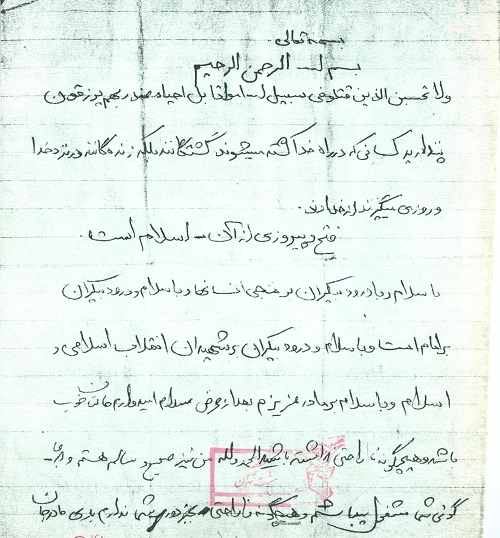 بسمه تعالی
بسم الله الرحمن الرحیم
ولا تحسبن الذین قتلو فی سبیل الله امواتا بل احیاء عند ربهم یرزقون
پندارید کسانی که در راه خدا کشته میشوند کشتگانند بلکه زنده گانند و نزد خدا
و روزی میگیرند از خدا
فتح و پیروزی از آن اسلام است.
با سلام و با درود بیکران بر منجی انسانها و با سلام و درود بیکران
بر امام امت و با سلام و درود بیکران بر شهیدان انقلاب اسلامی و
اسلام و با سلام بر مادر عزیزم بعد از عرض سلام امیدوارم حالتان خوب
باشد و هیچگونه ناراحتی نداشته باشید الحمدلله من نیز صحیح و سالم هستم و
گوئی شما مشغول میباشم و هیچگونه ناراحتی بجز دوری شما ندارم باری مادرجان